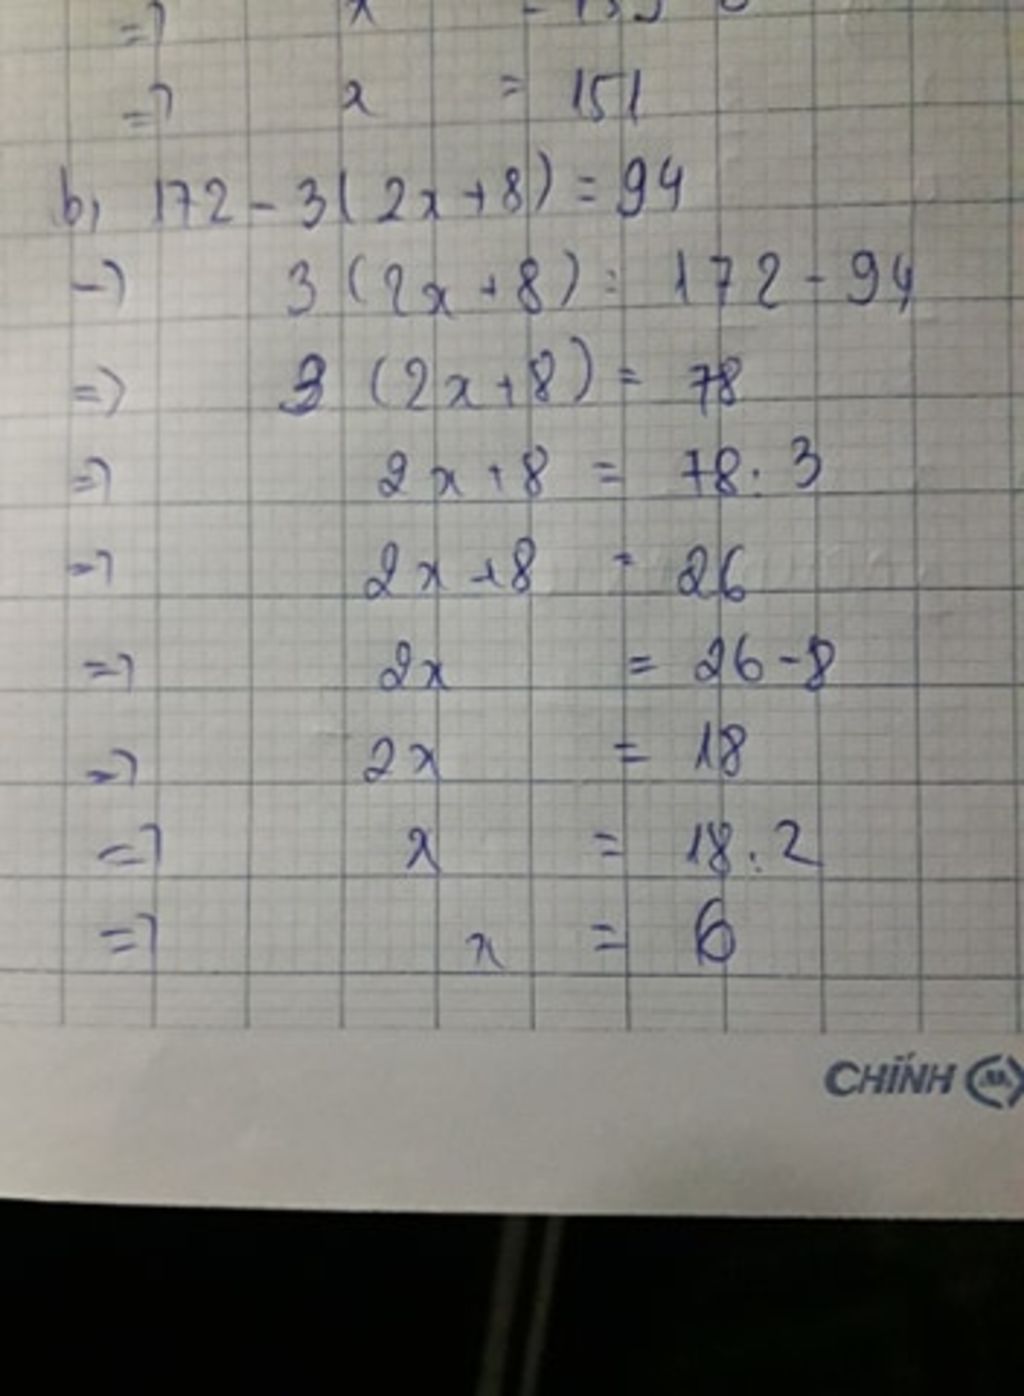 => x
=> x = 151
b, 172 - 3(2x+8) = 94
-) 3(2x+8) = 172 - 94
=) 3(2x+8) = 78
=> 2x+8 = 78 : 3
=> 2x+8 = 26
=> 2x = 26-8
=> 2x = 18
=> x = 18 : 2
=> x = 6
CHÍNH